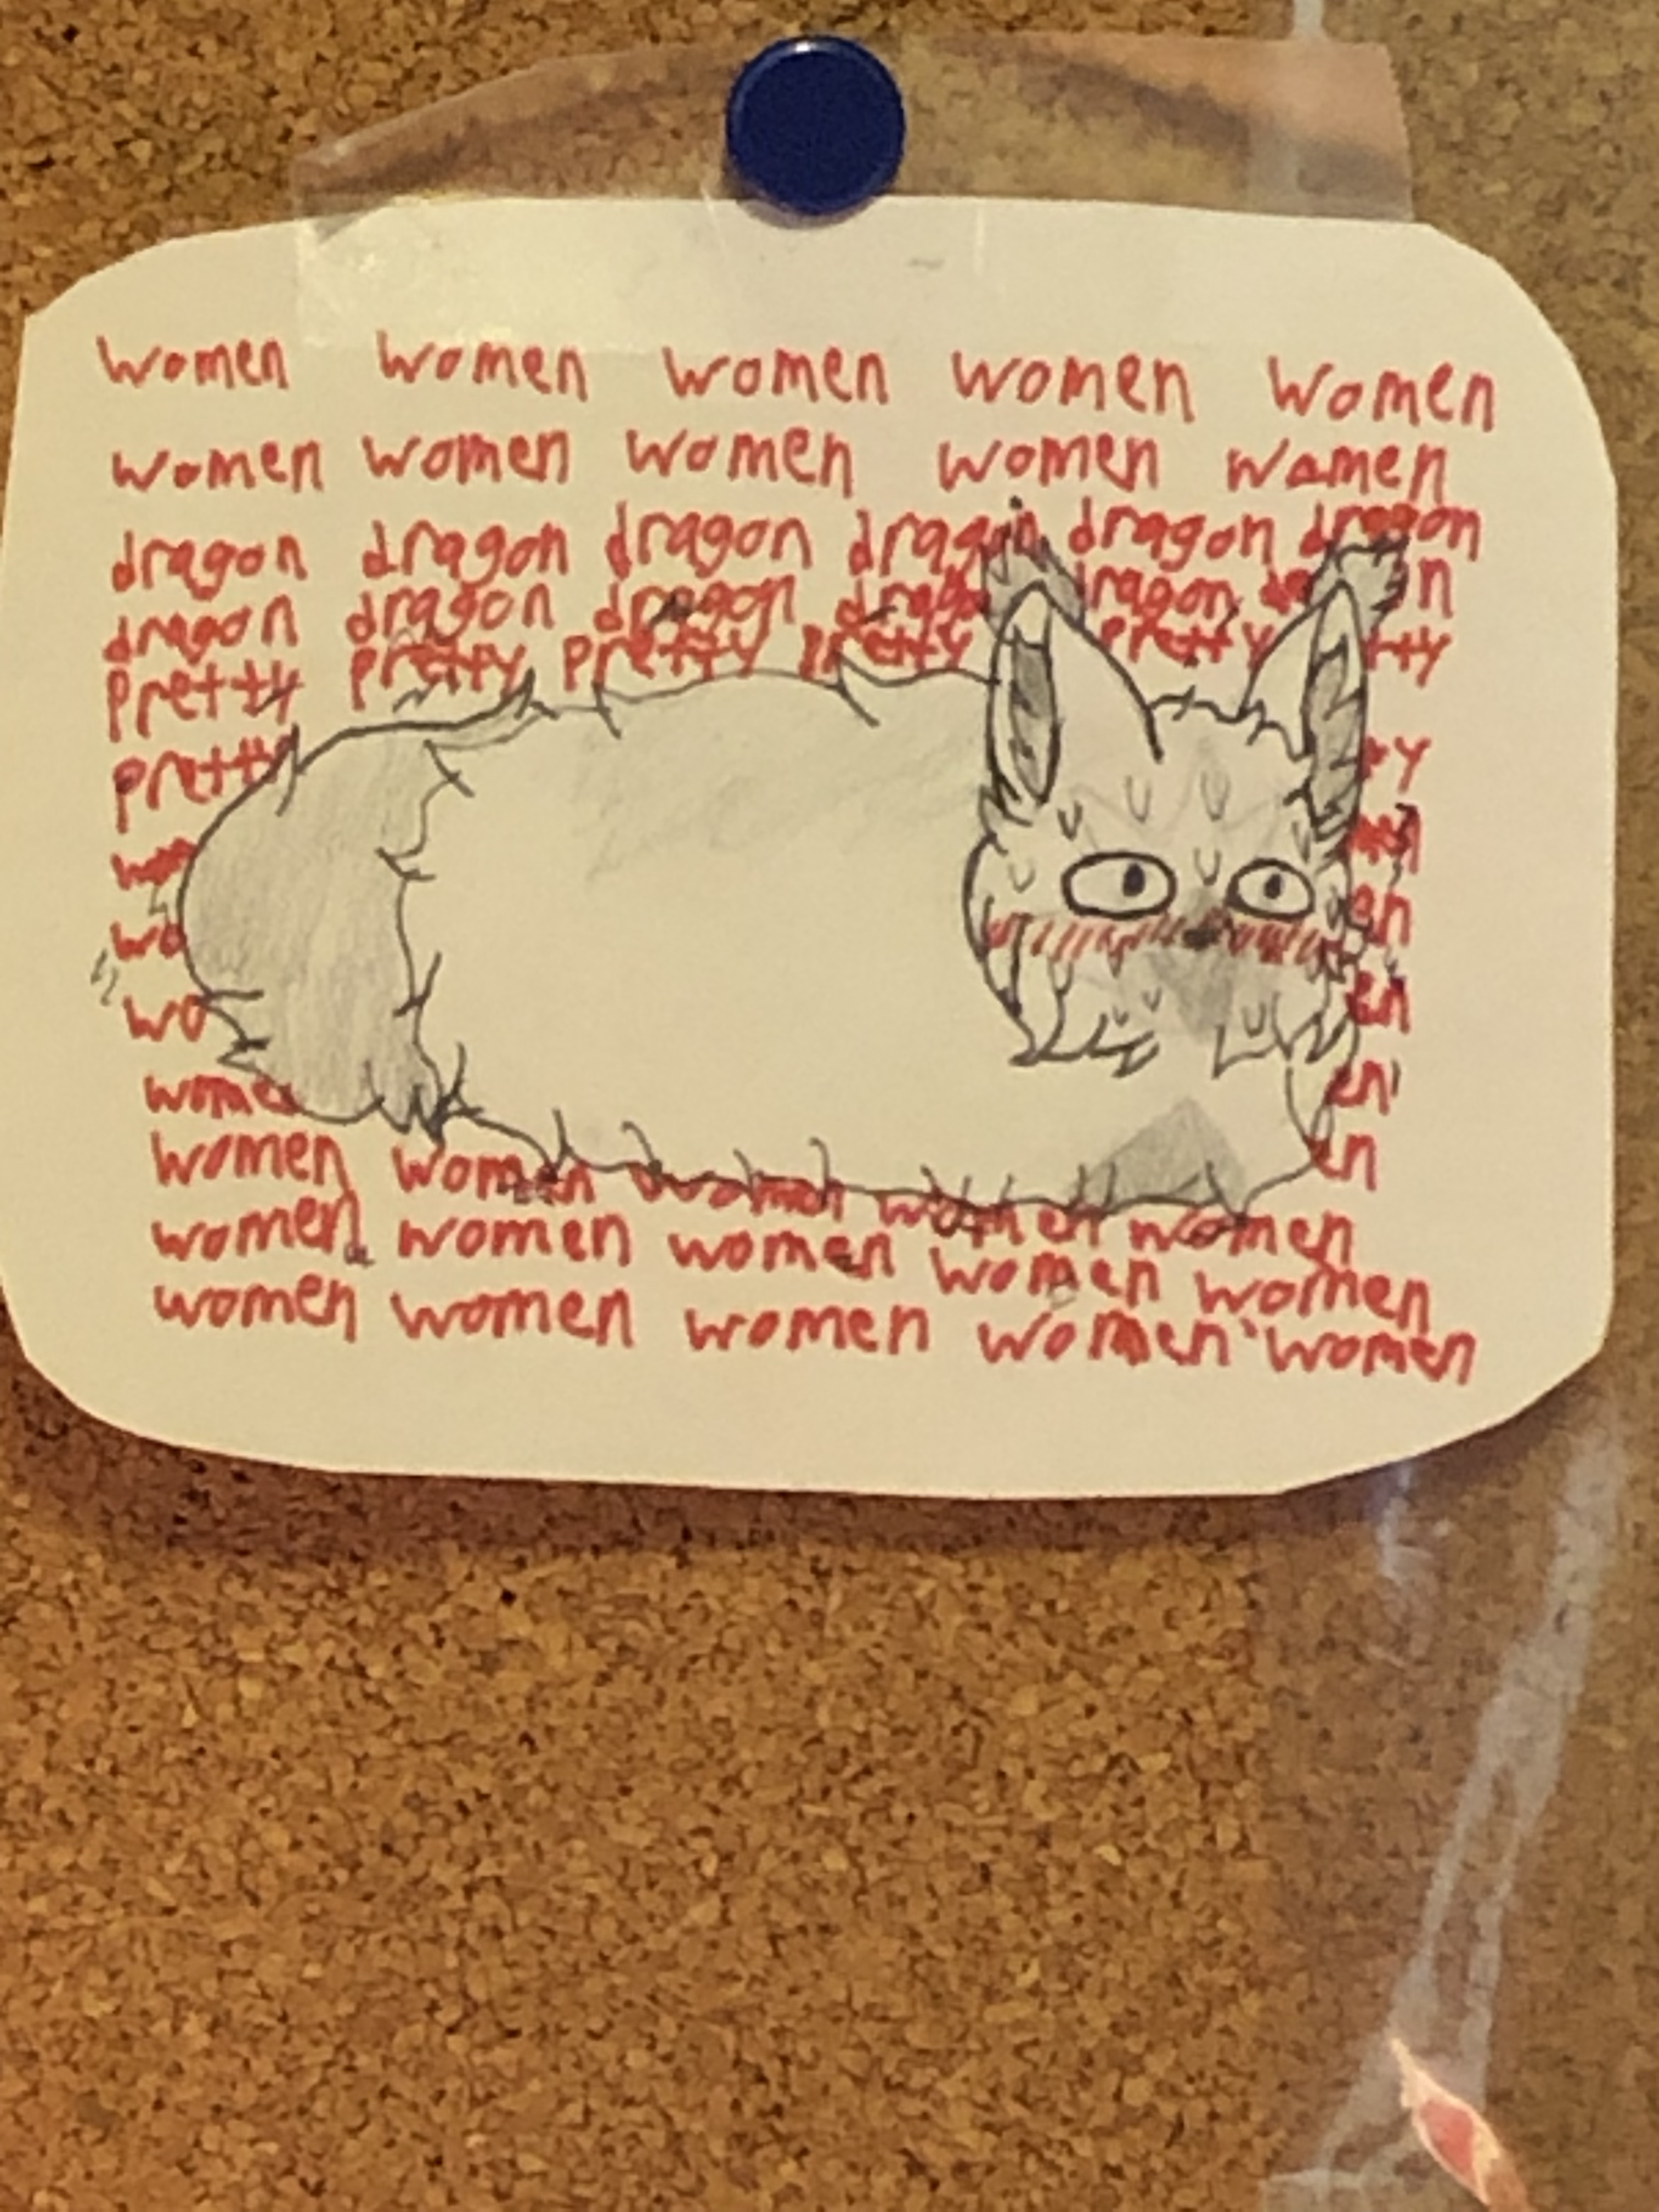 women women women women women
women women women women women
dragon dragon dragon dragon dragon dragon
dragon dragon dragon drago dragon
pretty pretty pretty pretty pretty tty
pretty y
wo
wo en
wo en
wome en
women women women women women en
women women women women women
women women women women women